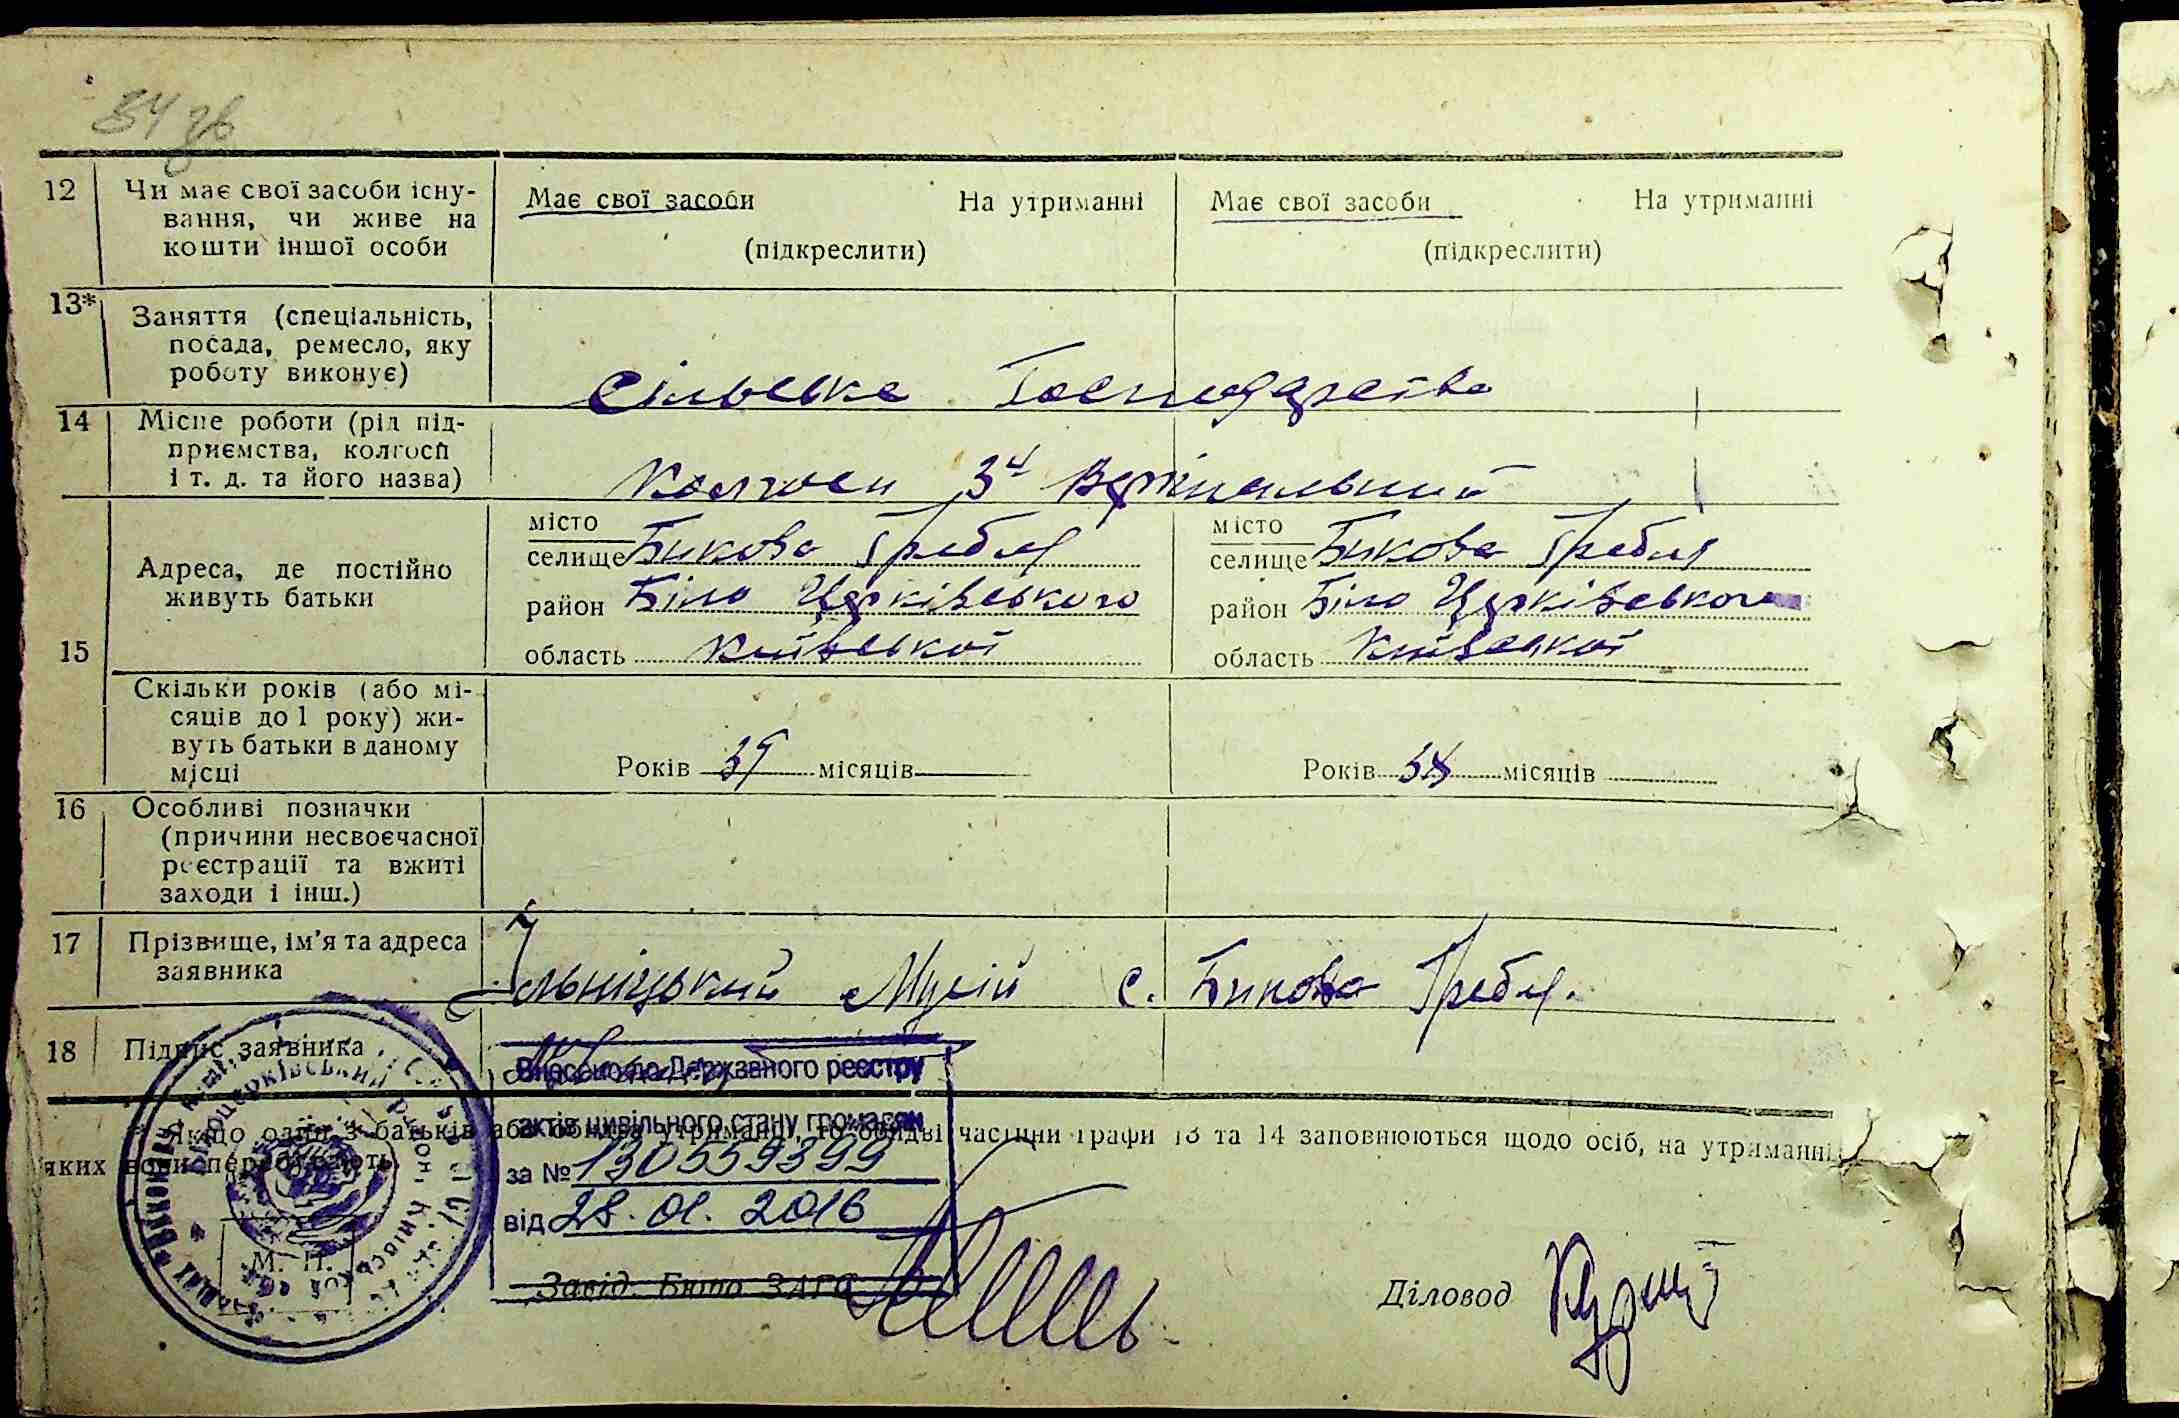 54 зв
12 Чи має свої засоби існу- Має свої засоби На утриманні Має свої засоби На утриманні
вання, чи живе на
кошти іншої особи (підкреслити) (підкреслити)
13* Заняття (спеціальність,
посада, ремесло, яку
роботу виконує) Сільське Господарство
14 Місце роботи (рід під-
приємства, колгосп
і т. д. та його назва) Колгосп 3й Вирішальний
місто місто
селище Бикова Гребля селище Бикова Гребля
Адреса, де постійно
живуть батьки район Біло Церківського район Біло Церківського
15 область Київської область Київської
Скільки років (або мі-
сяців до 1 року) жи-
вуть батьки в даному
місці Років 39 місяців Років 38 місяців
16 Особливі позначки
(причини несвоєчасної
реєстрації та вжиті
заходи і інш.)
17 Прізвище, ім'я та адреса
заявника Ільніцький Мусій с. Бикова Гребля.
18 Підпис заявника
Внесено до Державного реєстру
актів цивільного стану громадян
* Якщо один з батьків або обидва утриманці, то обидві частини графи 13 та 14 заповнюються щодо осіб, на утриманні
яких вони перебувають.
за № 1305559399
від 28.01.2016
М. П.
Завід. Бюро ЗАГС Діловод
Білоцерківський район Київської обл.